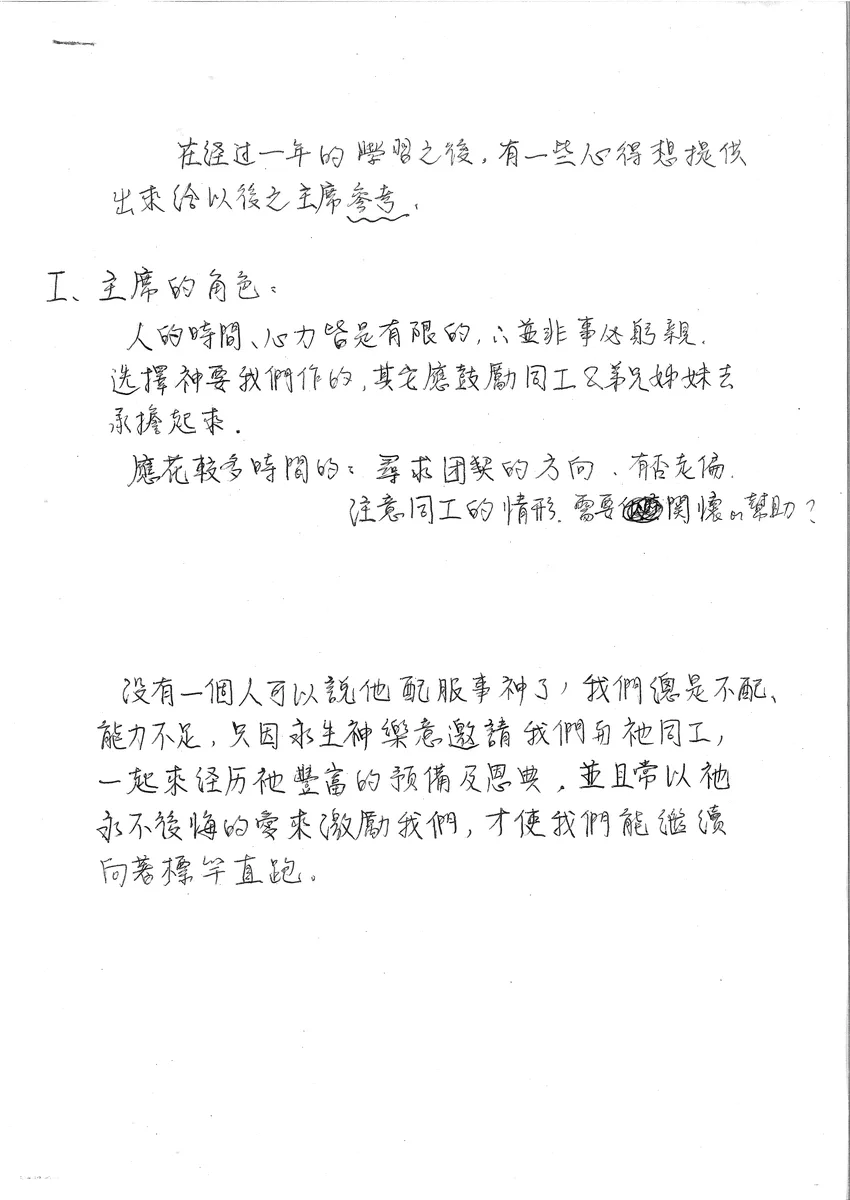 在经过一年的學習之後,有一些心得想提供
出來給以後之主席參考.
I、主席的角色:
人的時間、心力皆是有限的,∴並非事必躬親.
选擇神要我們作的,其它應鼓勵同工&弟兄姊妹去
承擔起來.
應花較多時間的:尋求团契的方向、有否走偏.
注意同工的情形.需要関懷or幫助?
没有一個人可以說他配服事神了,我們總是不配、
能力不足,只因永生神樂意邀請我們与祂同工,
一起來经历祂豐富的預備及恩典,並且常以祂
永不後悔的愛來激勵我們,才使我們能繼續
向著標竿直跑。